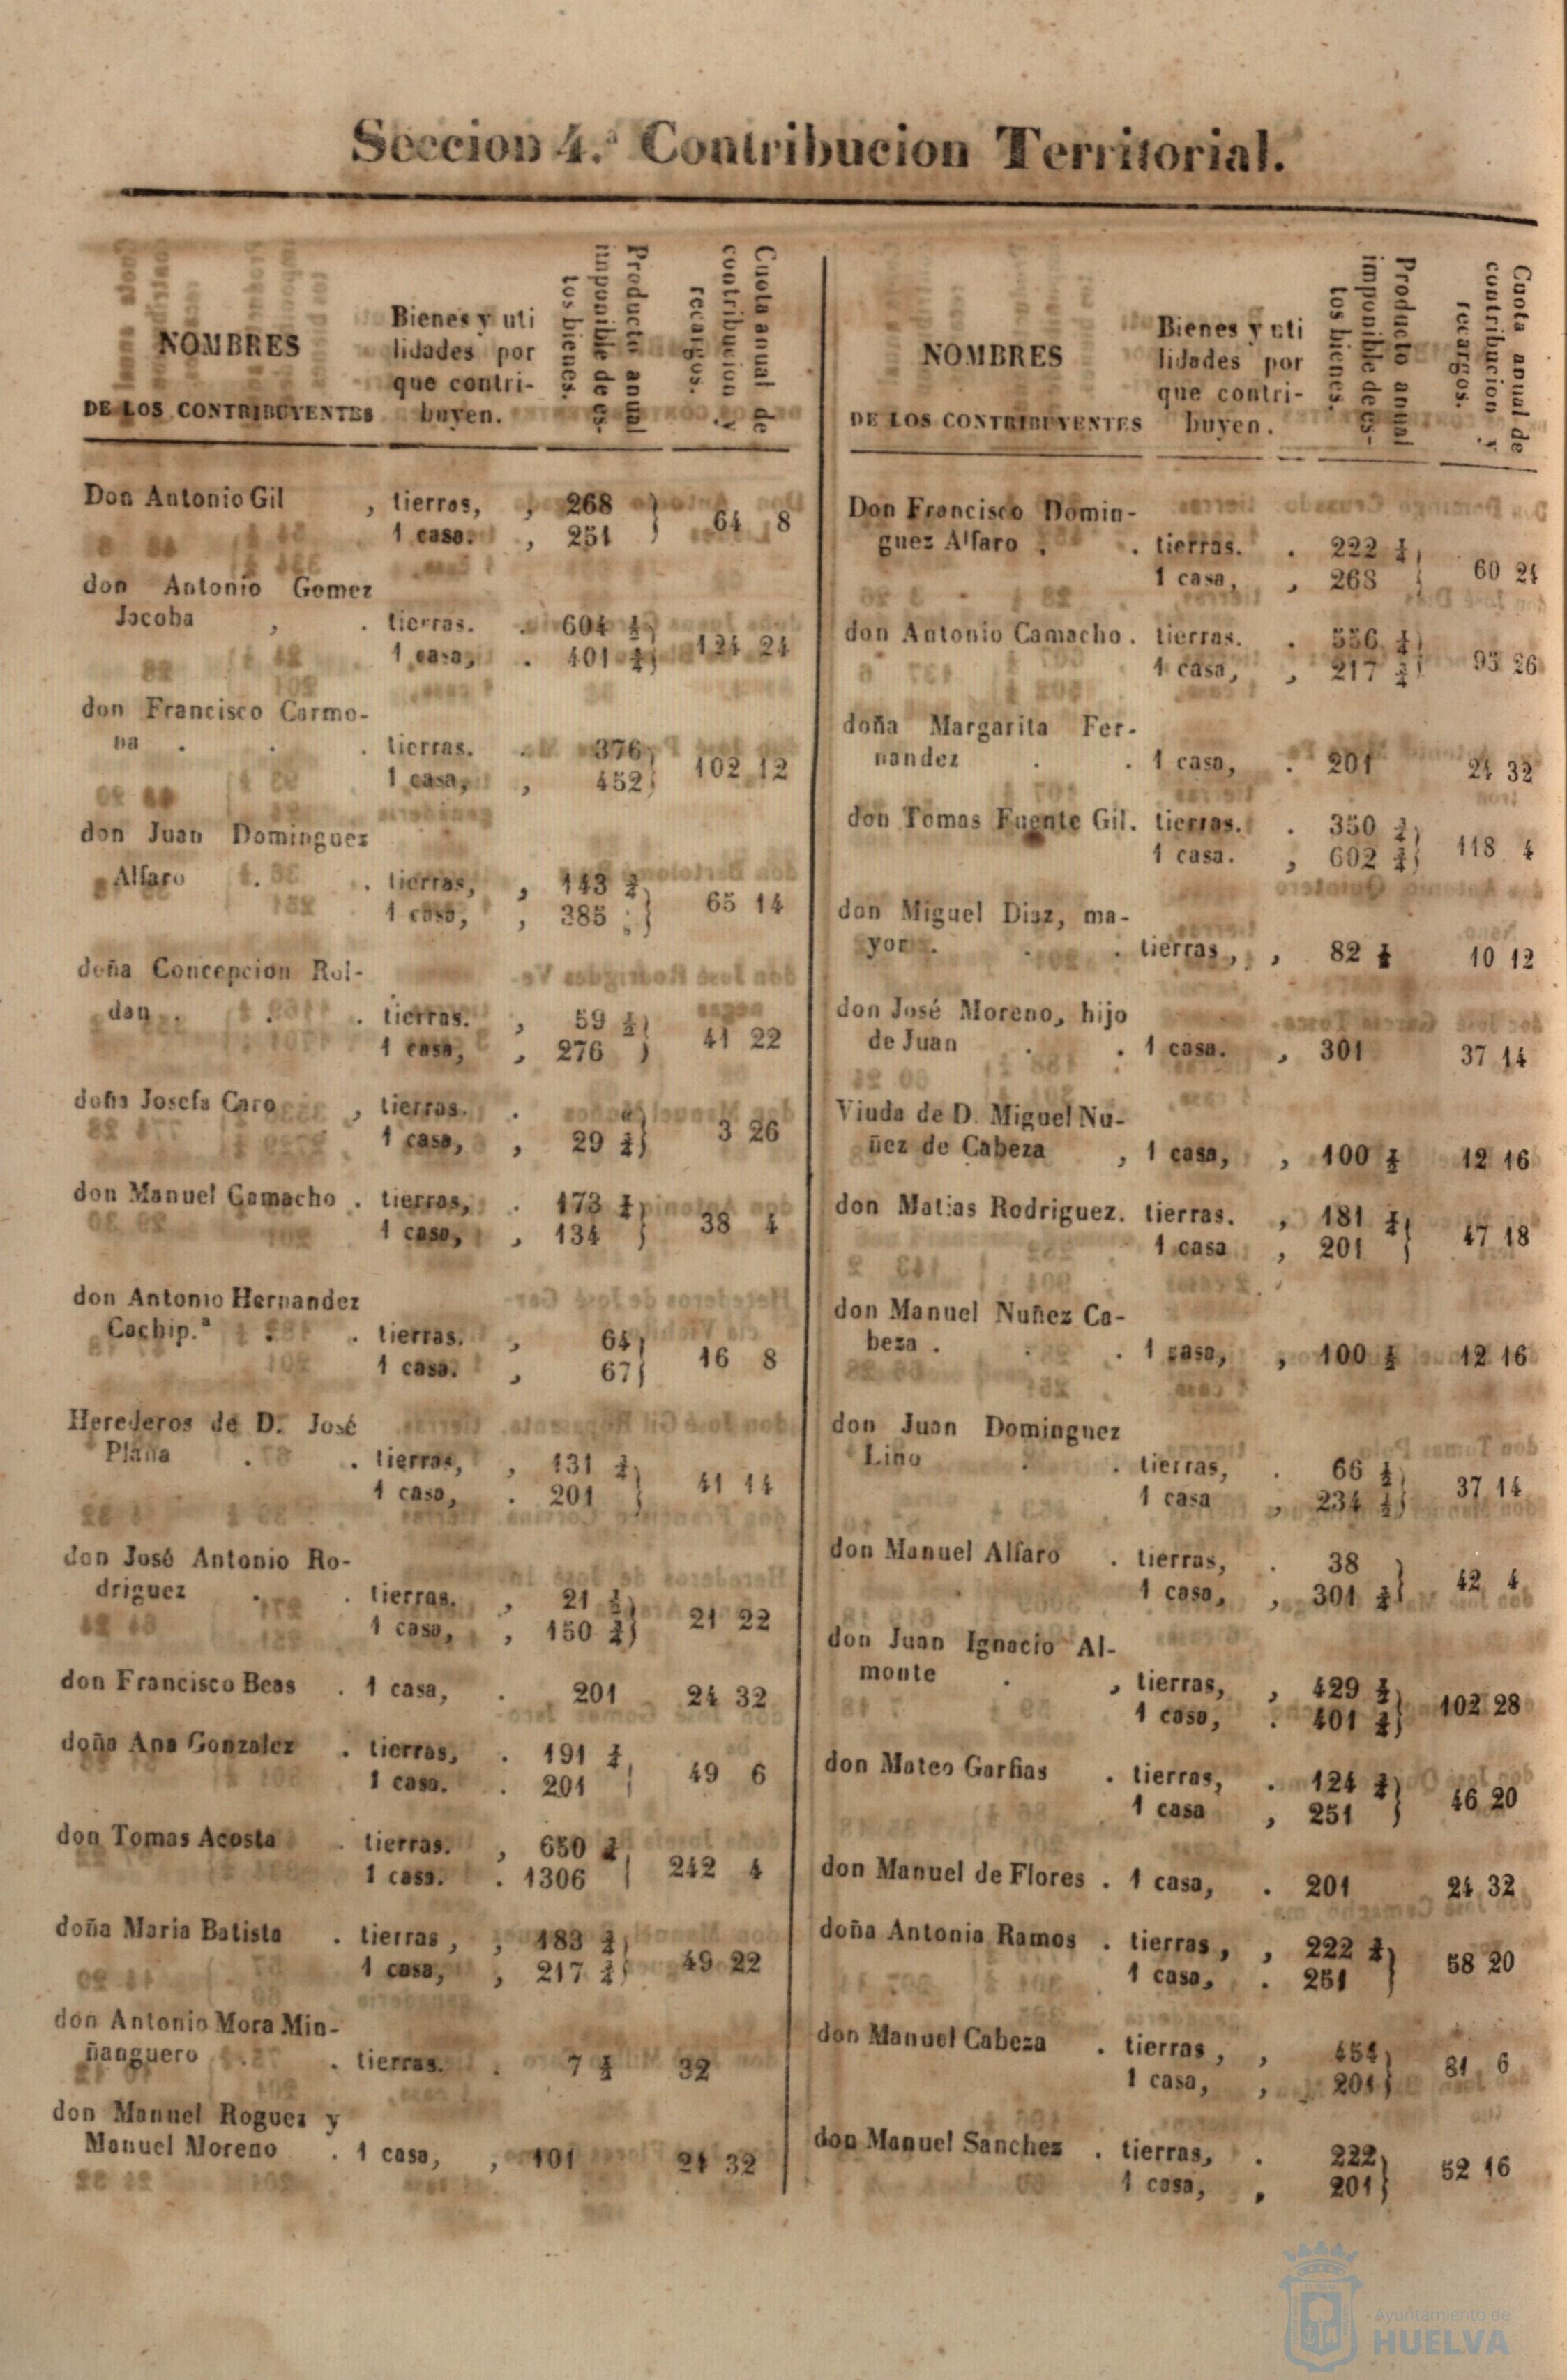 Seccion 4.ª Contribucion Territorial.
NOMBRES
DE LOS CONTRIBUYENTES
Bienes y uti
lidades por
que contri-
buyen.
Producto anual
imponible de es-
tos bienes.
Cuota anual de
contribucion y
recargos.
Don Antonio Gil , tierras, , 268
1 casa. , 251 } 64 8
don Antonio Gomez
Jacoba , . tierras. . 604
1 casa, . 401 124 24
don Francisco Carmo-
na . . . tierras. . 376
1 casa, , 452 102 12
don Juan Dominguez
Alfaro . . tierras, , 143
1 casa, , 385 65 14
doña Concepcion Rol-
dan . . . tierras. , 59
1 casa, , 276 41 22
doña Josefa Caro , tierras. .
1 casa, , 29 3 26
don Manuel Camacho . tierras, . 173
1 casa, , 134 38 4
don Antonio Hernandez
Cachip.ª . . tierras. , 64
1 casa. , 67 16 8
Herederos de D. José
Plaña . . tierras, , 131
1 casa, . 201 41 14
don José Antonio Ro-
driguez . . tierras. , 21
1 casa, , 150 21 22
don Francisco Beas . 1 casa, . 201 24 32
doña Ana Gonzalez . tierras, . 191
1 casa. . 201 49 6
don Tomas Acosta . tierras. , 650
1 casa. . 1306 242 4
doña Maria Batista . tierras , , 183
1 casa, , 217 49 22
don Antonio Mora Min-
ñanguero . . tierras. . 7 32
don Manuel Roguez y
Manuel Moreno . 1 casa, , 101 24 32
NOMBRES
DE LOS CONTRIBUYENTES
Bienes y uti
lidades por
que contri-
buyen.
Producto anual
imponible de es-
tos bienes.
Cuota anual de
contribucion y
recargos.
Don Francisco Domin-
guez Alfaro . . tierras. . 222
1 casa, , 268 60 24
don Antonio Camacho . tierras. . 556
1 casa, , 217 93 26
doña Margarita Fer-
nandez . . 1 casa, . 201 24 32
don Tomas Fuente Gil. tierras. . 350
1 casa. , 602 118 4
don Miguel Diaz, ma-
yor . . . tierras, , 82 10 12
don José Moreno, hijo
de Juan . . 1 casa. , 301 37 14
Viuda de D. Miguel Nu-
ñez de Cabeza , 1 casa, , 100 12 16
don Matias Rodriguez. tierras. , 181
1 casa , 201 47 18
don Manuel Nuñez Ca-
beza . . . 1 casa, , 100 12 16
don Juan Dominguez
Lino . . tierras, . 66
1 casa , 234 37 14
don Manuel Alfaro . tierras, . 38
1 casa, , 301 42 4
don Juan Ignacio Al-
monte . , tierras, , 429
1 casa, . 401 102 28
don Mateo Garfias . tierras, . 124
1 casa , 251 46 20
don Manuel de Flores . 1 casa, . 201 24 32
doña Antonia Ramos . tierras , , 222
1 casa, . 251 58 20
don Manuel Cabeza . tierras , , 454
1 casa, , 201 81 6
don Manuel Sanchez . tierras, . 222
1 casa, , 201 52 16
Ayuntamiento de
HUELVA